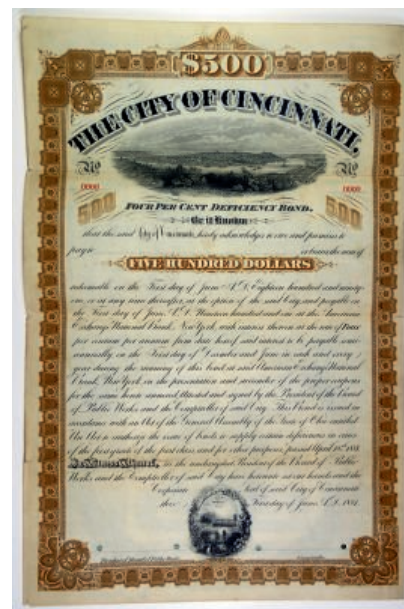 $500
THE CITY OF CINCINNATI,
No No
0000 0000
500 FOUR PER CENT DEFICIENCY BOND. 500
Be it Known
that the said City of Cincinnati, hereby acknowledges to owe and promises to
pay to or bearer the sum of
FIVE HUNDRED DOLLARS
redeemable on the First day of June A.D. Eighteen hundred and ninety
one, or at any time thereafter, at the option of the said City, and payable on
the First day of June, A.D. Nineteen hundred and one at the American
Exchange National Bank, New York, with interest thereon at the rate of Four
per centum per annum from date hereof said interest to be payable semi-
annually on the First day of December and June in each and every
year during the running of this bond, at said American Exchange National
Bank, New York, on the presentation and surrender of the proper coupons
for the same hereto annexed, Attested and signed by the President of the Board
of Public Works and the Comptroller of said City. This Bond is issued in
accordance with an Act of the General Assembly of the State of Ohio entitled
An Act to authorize the issue of bonds to supply certain deficiencies in cities
of the first grade of the first class and for other purposes, passed April
In Witness Whereof, we the undersigned President of the Board of Public
Works and the Comptroller of said City have hereunto set our hands and the
Corporate Seal of said City of Cincinnati
this First day of June, A.D. 1881.